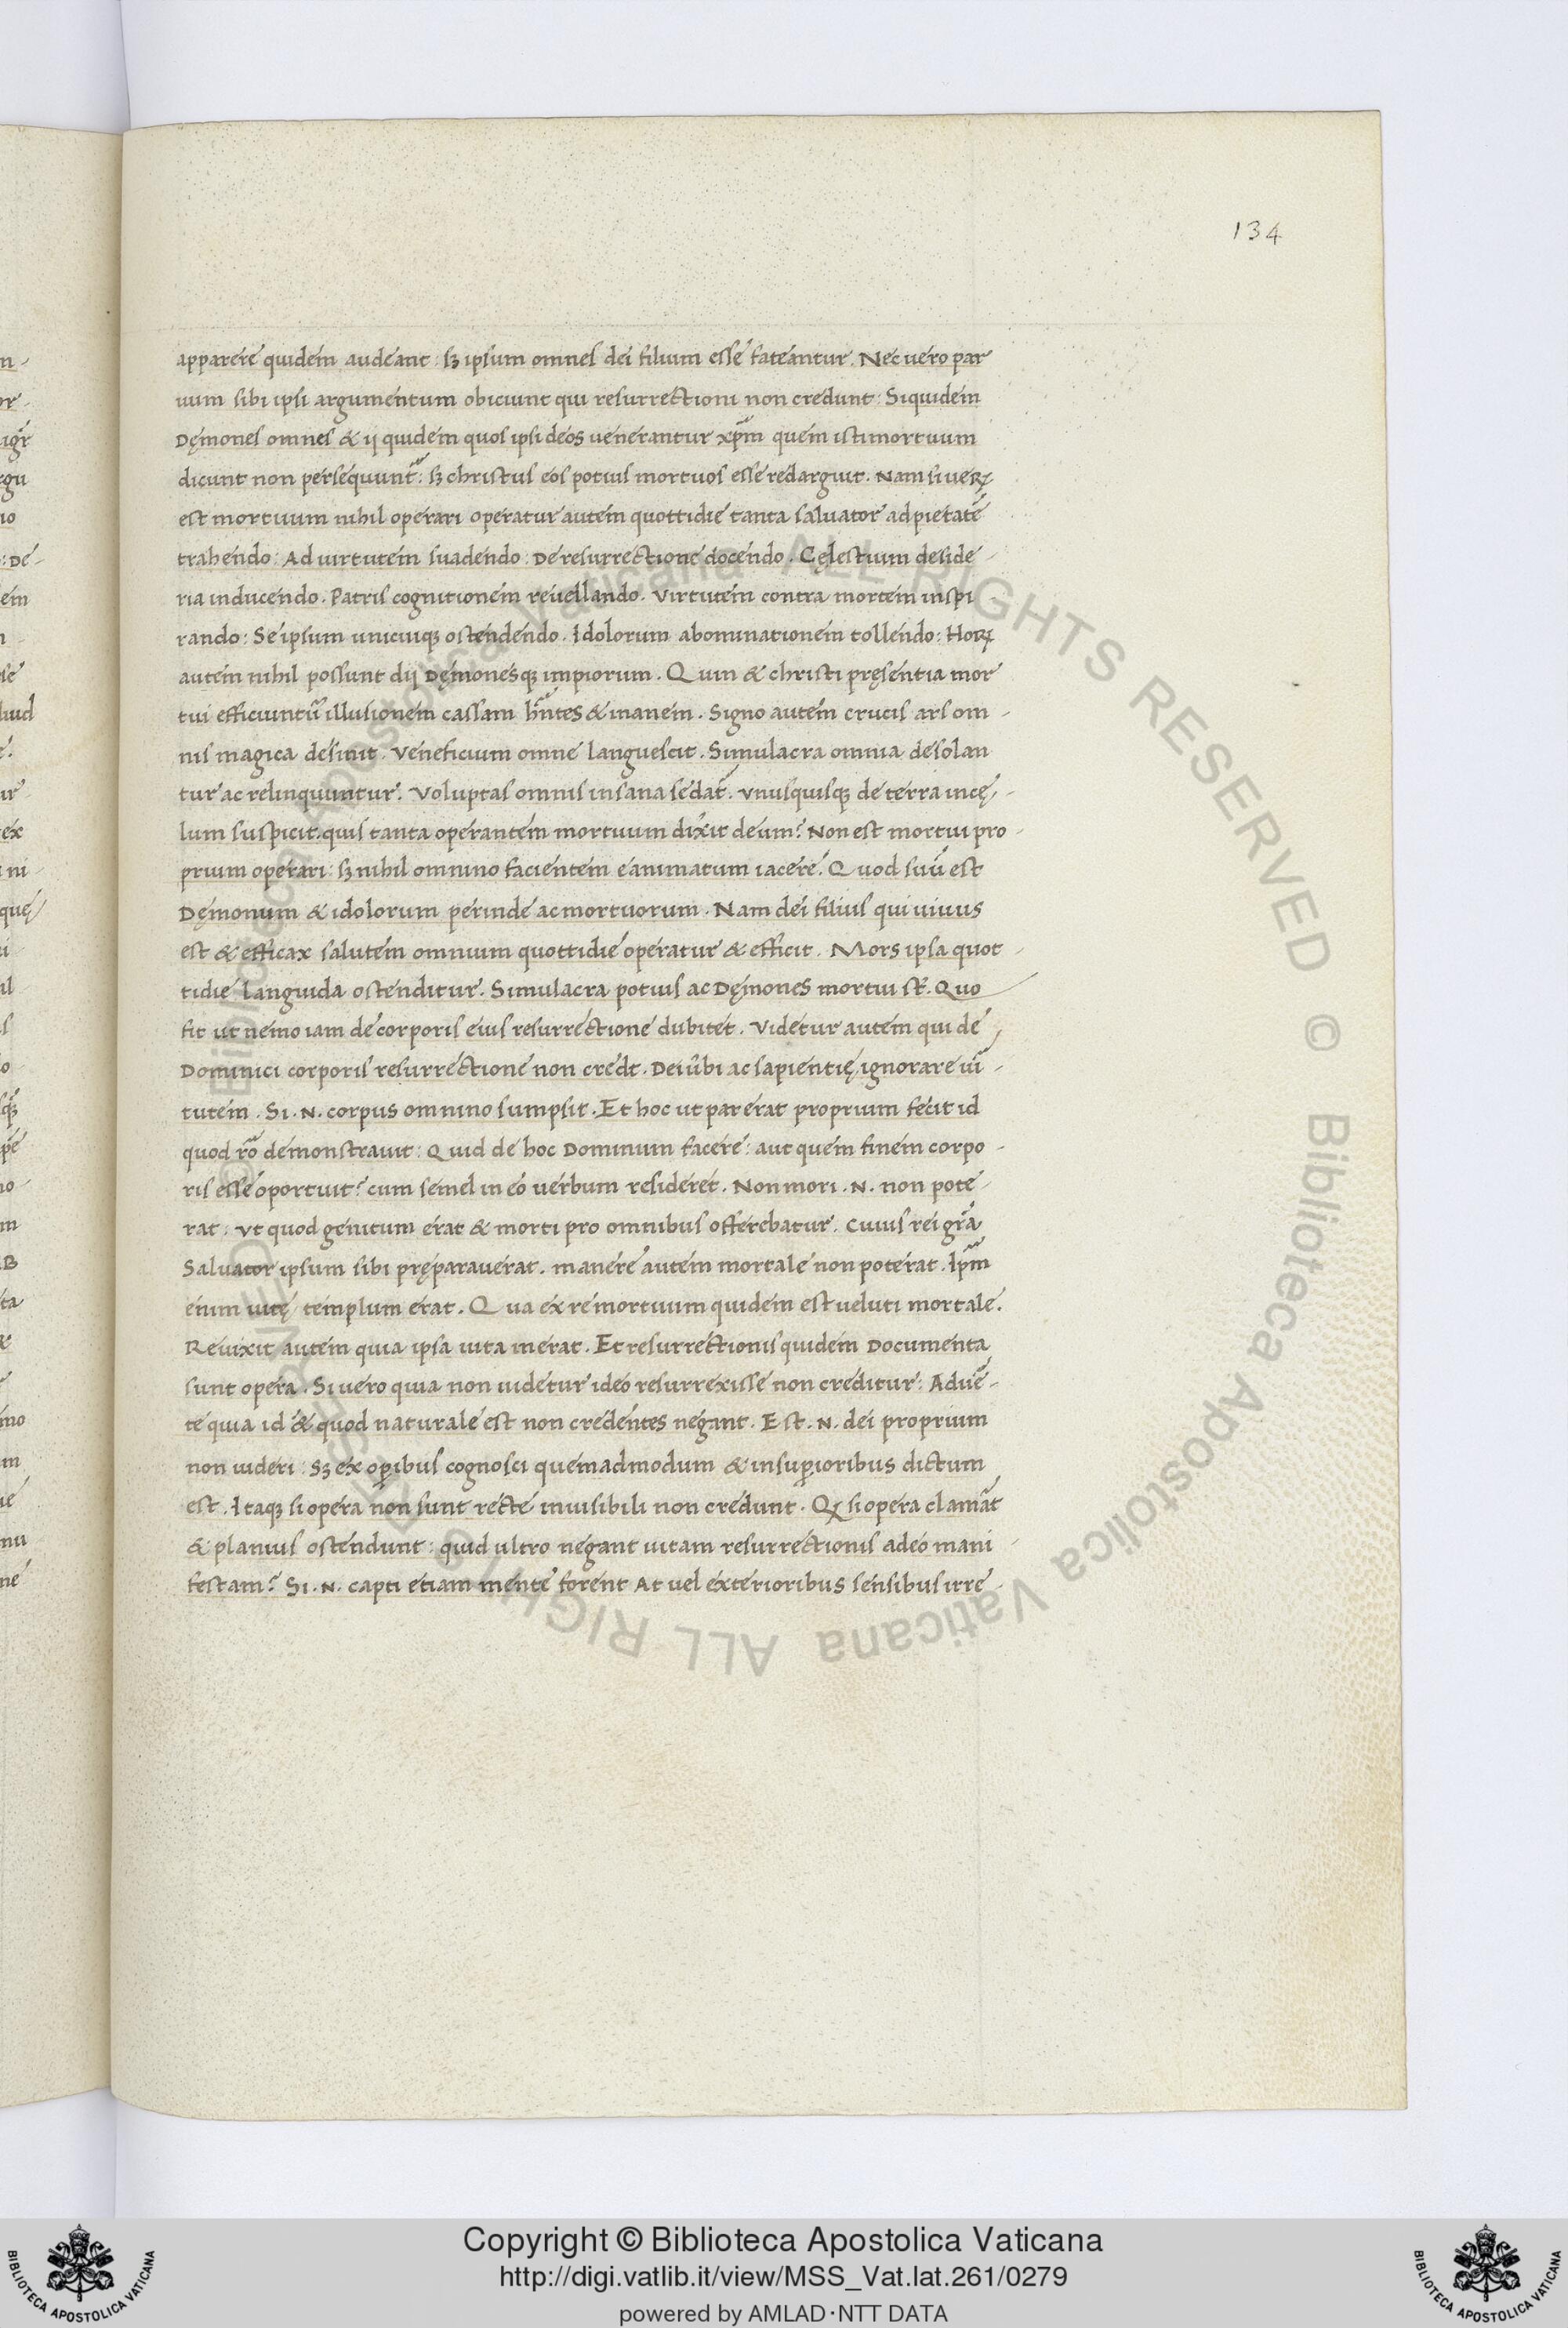 134
apparere quidem audeant: sꝫ ipsum omnes dei filium esse fateantur. Nec uero par
uum sibi ipsi argumentum obiciunt qui resurrectioni non credunt: Siquidem
Dęmones omnes & ij quidem quos ipsi deos uenerantur xp̄m quem isti mortuum
dicunt non persequunt᷑: sꝫ christus eos potius mortuos esse redarguit. Nam si ueꝝ
est mortuum nihil operari operatur autem quottidie tanta saluator ad pietatē
trahendo: Ad uirtutem suadendo: De resurrectione docendo. Cęlestium deside-
ria inducendo. Patris cognitionem reuellando. Virtutem contra mortem inspi
rando: Se ipsum unicuiqꝫ ostendendo. Idolorum abominationem tollendo: Hoꝝ
autem nihil possunt dij Dęmonesqꝫ impiorum. Quin & christi pręsentia mor
tui efficiunt᷑ illusionem cassam hn̄tes & inanem. Signo autem crucis ars om-
nis magica desinit. Veneficium omne languescit. Simulacra omnia desolan
tur ac relinquuntur. Voluptas omnis insana sedat᷑. Vnusquisqꝫ de terra in cę-
lum suspicit. quis tanta operantem mortuum dixit deum? Non est mortui pro-
prium operari: sꝫ nihil omnino facientem eanimatum iacere. Quod suū est
Dęmonum & idolorum perinde ac mortuorum. Nam dei filius qui uiuus
est & efficax salutem omnium quottidie operatur & efficit. Mors ipsa quot-
tidie languida ostenditur. Simulacra potius ac Dęmones mortui st̄. Quo
fit ut nemo iam de corporis eius resurrectione dubitet. Videtur autem qui de
Dominici corporis resurrectione non credt. Dei ûbi ac sapientię ignorare ui᷑-
tutem. Si .N. corpus omnino sumpsit. Et hoc ut par erat proprium fecit id
quod rō demonstrauit: Quid de hoc Dominum facere: aut quem finem corpo-
ris esse oportuit? cum semel in eo uerbum resideret. Non mori .N. non pote-
rat: Vt quod genitum erat & morti pro omnibus offerebatur. Cuius rei gr̄a
Saluator ipsum sibi pręparauerat. manere autem mortale non poterat. Ip̄m
enim uitę templum erat. Qua ex re mortuum quidem est ueluti mortale.
Reuixit autem quia ipsa uita inerat. Et resurrectionis quidem Documenta
sunt opera. Si uero quia non uidetur ideo resurrexisse non creditur: Aduē-
te quia id & quod naturale est non credentes negant. Est .N. dei proprium
non uideri: Sꝫ ex oꝑibus cognosci quemadmodum & in suꝑioribus dictum
est. Itaqꝫ si opera non sunt recte inuisibili non credunt. Qꝫ si opera clamāt
& planius ostendunt: quid ultro negant uitam resurrectionis adeo mani-
festam? Si .N. capti etiam mente forent At uel exterioribus sensibus irre-
Copyright © Biblioteca Apostolica Vaticana
http://digi.vatlib.it/view/MSS_Vat.lat.261/0279
powered by AMLAD·NTT DATA